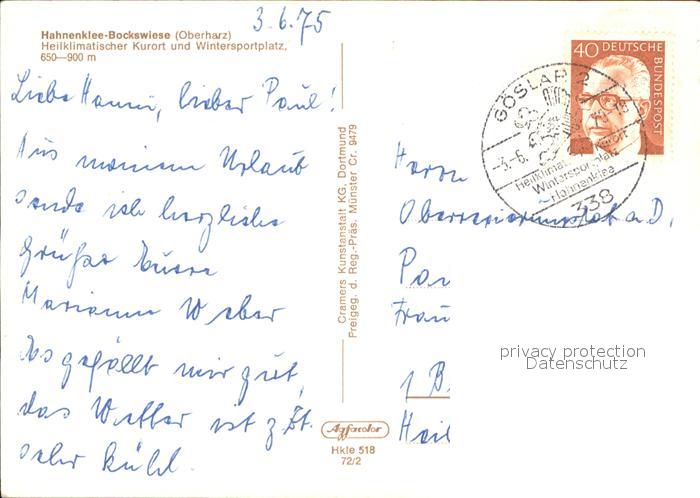 3.6.75
Hahnenklee-Bockswiese (Oberharz)
Heilklimatischer Kurort und Wintersportplatz,
650—900 m
Liebe Hanni, lieber Paul!
Aus meinem Urlaub
sende ich herzliche
Grüße Eure
Marianne Weber
Es gefällt mir gut,
das Wetter ist z. Zt.
sehr kühl.
Cramers Kunstanstalt KG, Dortmund
Freigeg. d. Reg.-Präs. Münster Cr. 9479
Agfacolor
Hkle 518
72/2
40 DEUTSCHE BUNDESPOST
GOSLAR 2
-3.-6.
Heilklimat. Kurort
Wintersportplatz
Hahnenklee
338
Herrn
a. D.
Pau
Frau
1 B
Heil
privacy protection
Datenschutz